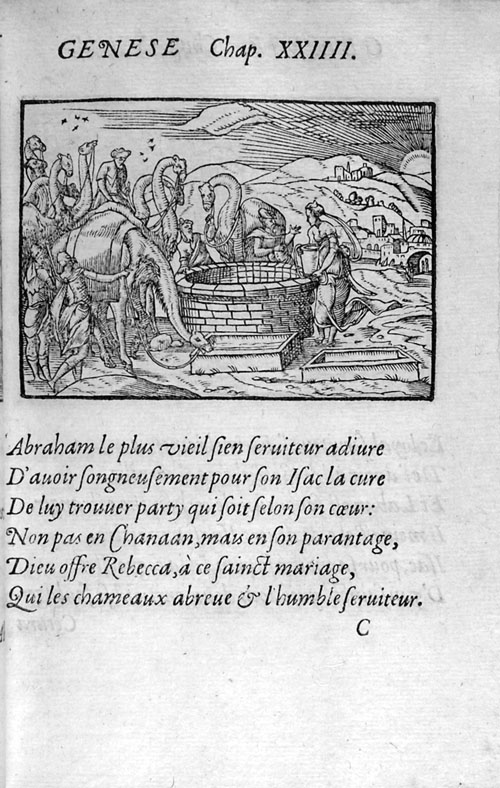 GENESE Chap. XXIIII.
Abraham le plus vieil sien seruiteur adiure
D'auoir songneusement pour son Isac la cure
De luy trouuer party qui soit selon son cœur:
Non pas en Chanaan, mais en son parantage,
Dieu offre Rebecca, à ce sainct mariage,
Qui les chameaux abreue & l'humble seruiteur.
C